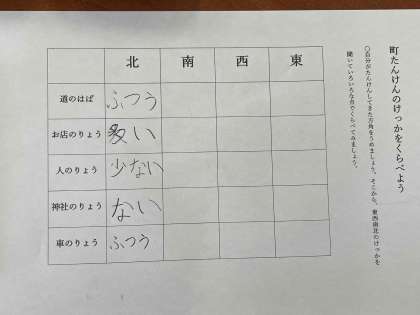 町たんけんのけっかをくらべよう
〇自分がたんけんしてきた方角をうめましょう。そこから、東西南北のけっかを
聞いていろいろな点でくらべてみましょう。
北 南 西 東
道のはば ふつう
お店のりょう 多い
人のりょう 少ない
神社のりょう ない
車のりょう ふつう